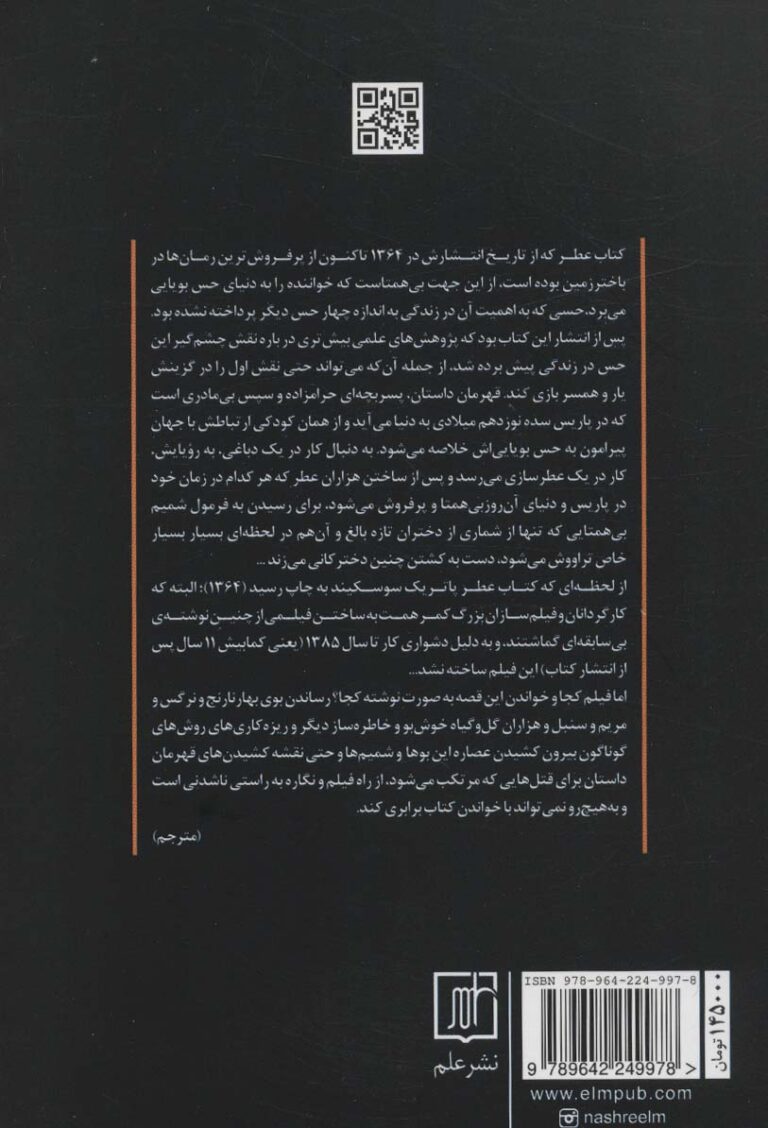 کتاب عطر که از تاریخ انتشارش در ۱۳۶۴ تاکنون از پرفروش‌ترین رمان‌ها در
باخترزمین بوده است، از این جهت بی‌همتاست که خواننده را به دنیای حس بویایی
می‌برد، حسی که به اهمیت آن در زندگی به اندازه چهار حس دیگر پرداخته نشده بود.
پس از انتشار این کتاب بود که پژوهش‌های علمی بیش‌تری درباره نقش چشم‌گیر این
حس در زندگی پیش برده شد، از جمله آن‌که می‌تواند حتی نقش اول را در گزینش
یار و همسر بازی کند. قهرمان داستان، پسربچه‌ای حرامزاده و سپس بی‌مادری است
که در پاریس سده نوزدهم میلادی به دنیا می‌آید و از همان کودکی ارتباطش با جهان
پیرامون به حس بویایی‌اش خلاصه می‌شود. به دنبال کار در یک دباغی، به رؤیایش،
کار در یک عطرسازی می‌رسد و پس از ساختن هزاران عطر که هر کدام در زمان خود
در پاریس و دنیای آن‌روز بی‌همتا و پرفروش می‌شود، برای رسیدن به فرمول شمیم
بی‌همتایی که تنها از شماری از دختران تازه بالغ و آن‌هم در لحظه‌ای بسیار بسیار
خاص تراووش می‌شود، دست به کشتن چنین دخترکانی می‌زند...
از لحظه‌ای که کتاب عطر پاتریک سوسکیند به چاپ رسید (۱۳۶۴)؛ البته که
کارگردانان و فیلم‌سازان بزرگ کمر همت به ساختن فیلمی از چنین نوشته‌ی
بی‌سابقه‌ای گماشتند، و به دلیل دشواری کار تا سال ۱۳۸۵ (یعنی کمابیش ۱۱ سال پس
از انتشار کتاب) این فیلم ساخته نشد...
اما فیلم کجا و خواندن این قصه به صورت نوشته کجا؟ رساندن بوی بهارنارنج و نرگس و
مریم و سنبل و هزاران گل‌وگیاه خوش‌بو و خاطره‌ساز دیگر و ریزه‌کاری‌های روش‌های
گوناگون بیرون کشیدن عصاره این بوها و شمیم‌ها و حتی نقشه کشیدن‌های قهرمان
داستان برای قتل‌هایی که مرتکب می‌شود، از راه فیلم و نگاره به راستی ناشدنی است
و به‌هیچ‌رو نمی‌تواند با خواندن کتاب برابری کند.
(مترجم)
نشر علم
ISBN 978-964-224-997-8
9 789642 249978 >
۱۴۵۰۰۰ تومان
www.elmpub.com
nashreelm